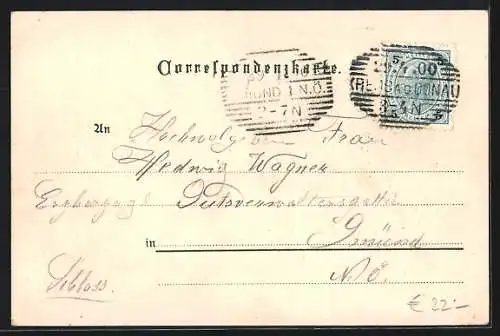 Correspondenzkarte.
29 7 00
GMÜND I. N.Ö.
2-7N
5 5
00
KREMS A/D DONAU
3-4N
5 5
An Hochwolgeboren Frau
Hedwig Wagner
Erzherzogl Gutsverwaltersgattin
in Gmünd
N.Ö.
Schloss.
€ 22.-